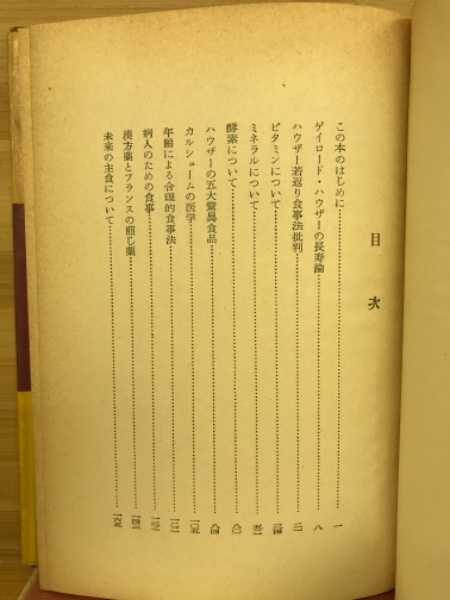 目次
この本のはじめに……一
ゲイロード・ハウザーの長寿論……八
ハウザー若返り食事法批判……二一
ビタミンについて……三四
ミネラルについて……五二
酵素について……八〇
ハウザーの五大驚異食品……八四
カルシュームの医学……一〇五
年齢による合理的食事法……一二二
病人のための食事……一三一
漢方薬とフランスの煎じ薬……一四一
未来の主食について……一六五